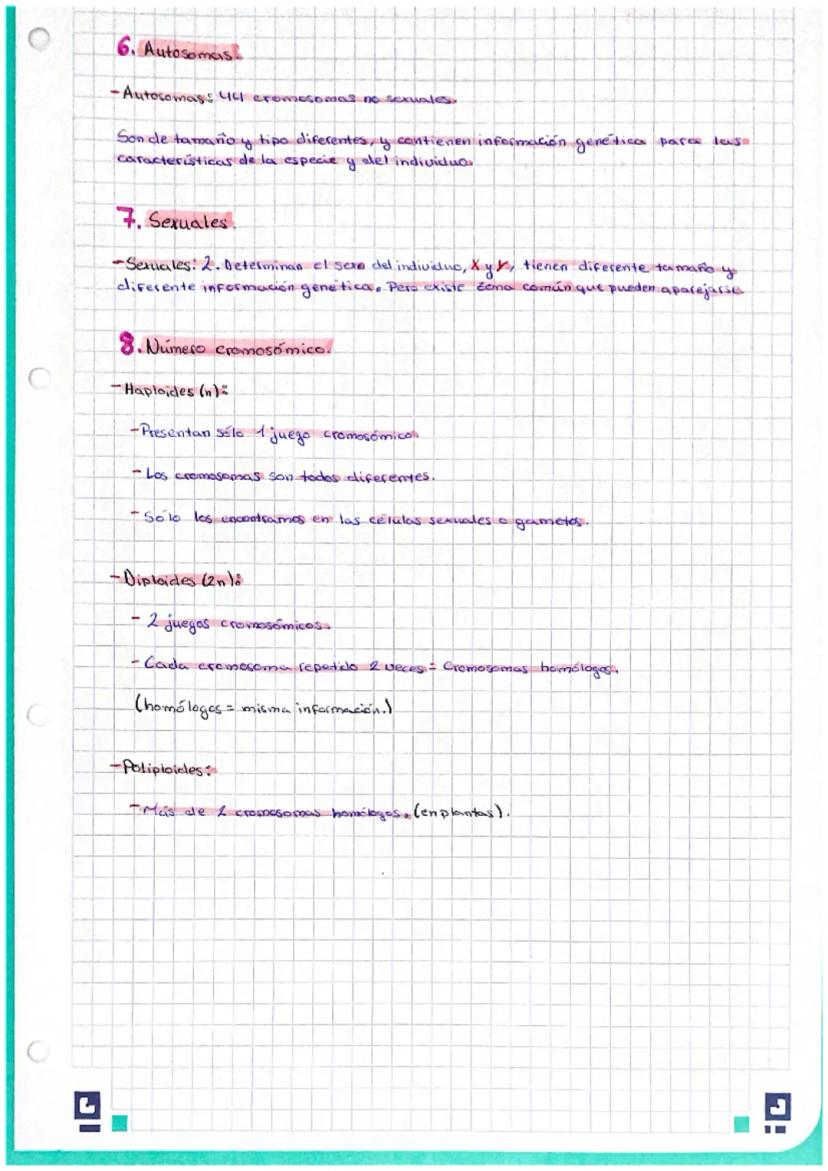 6. Autosomas.
-Autosomas: 44 cromosomas no sexuales.
Son de tamaño y tipo diferentes, y contienen información genética para las
características de la especie y del individuo.
7. Sexuales.
-Sexuales: 2. Determinan el sexo del individuo, X y Y, tienen diferente tamaño y
diferente información genética. Pero existe zona común que pueden aparejarse
8. Número cromosómico.
-Haploides (n):
-Presentan sólo 1 juego cromosómico.
-Los cromosomas son todos diferentes.
-Sólo los encontramos en las células sexuales o gametos.
-Diploides (2n):
-2 juegos cromosómicos.
-Cada cromosoma repetido 2 veces = Cromosomas homólogos.
(homólogos = misma información.)
-Poliploides:
-Más de 2 cromosomas homólogos. (en plantas).